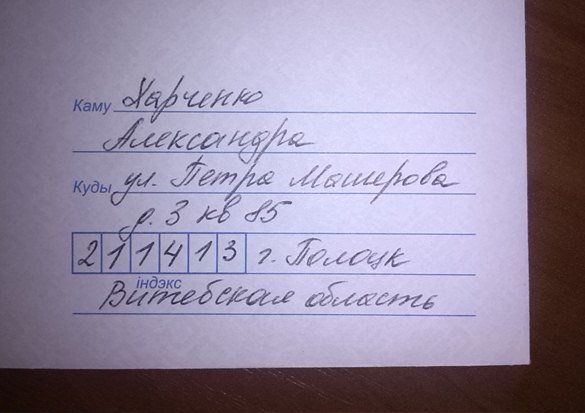 Каму Харченко
Александра
Куды ул. Петра Машерова
д. 3 кв 85
211413 г. Полоцк
індэкс
Витебская область